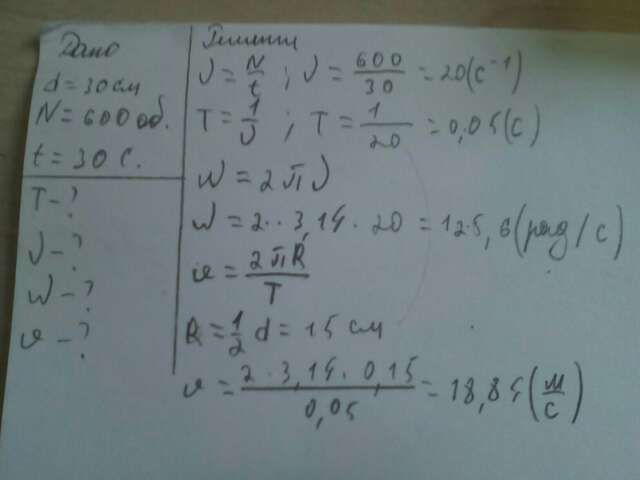 Дано
d = 30 см
N = 600 об.
t = 30 с.
T - ?
ν - ?
ω - ?
υ - ?
Решение
ν = N/t ; ν = 600/30 = 20 (с⁻¹)
T = 1/ν ; T = 1/20 = 0,05 (с)
ω = 2πν
ω = 2 · 3,14 · 20 = 125,6 (рад/с)
υ = 2πR/T
R = 1/2 d = 15 см
υ = 2 · 3,14 · 0,15/0,05 = 18,84 (м/с)